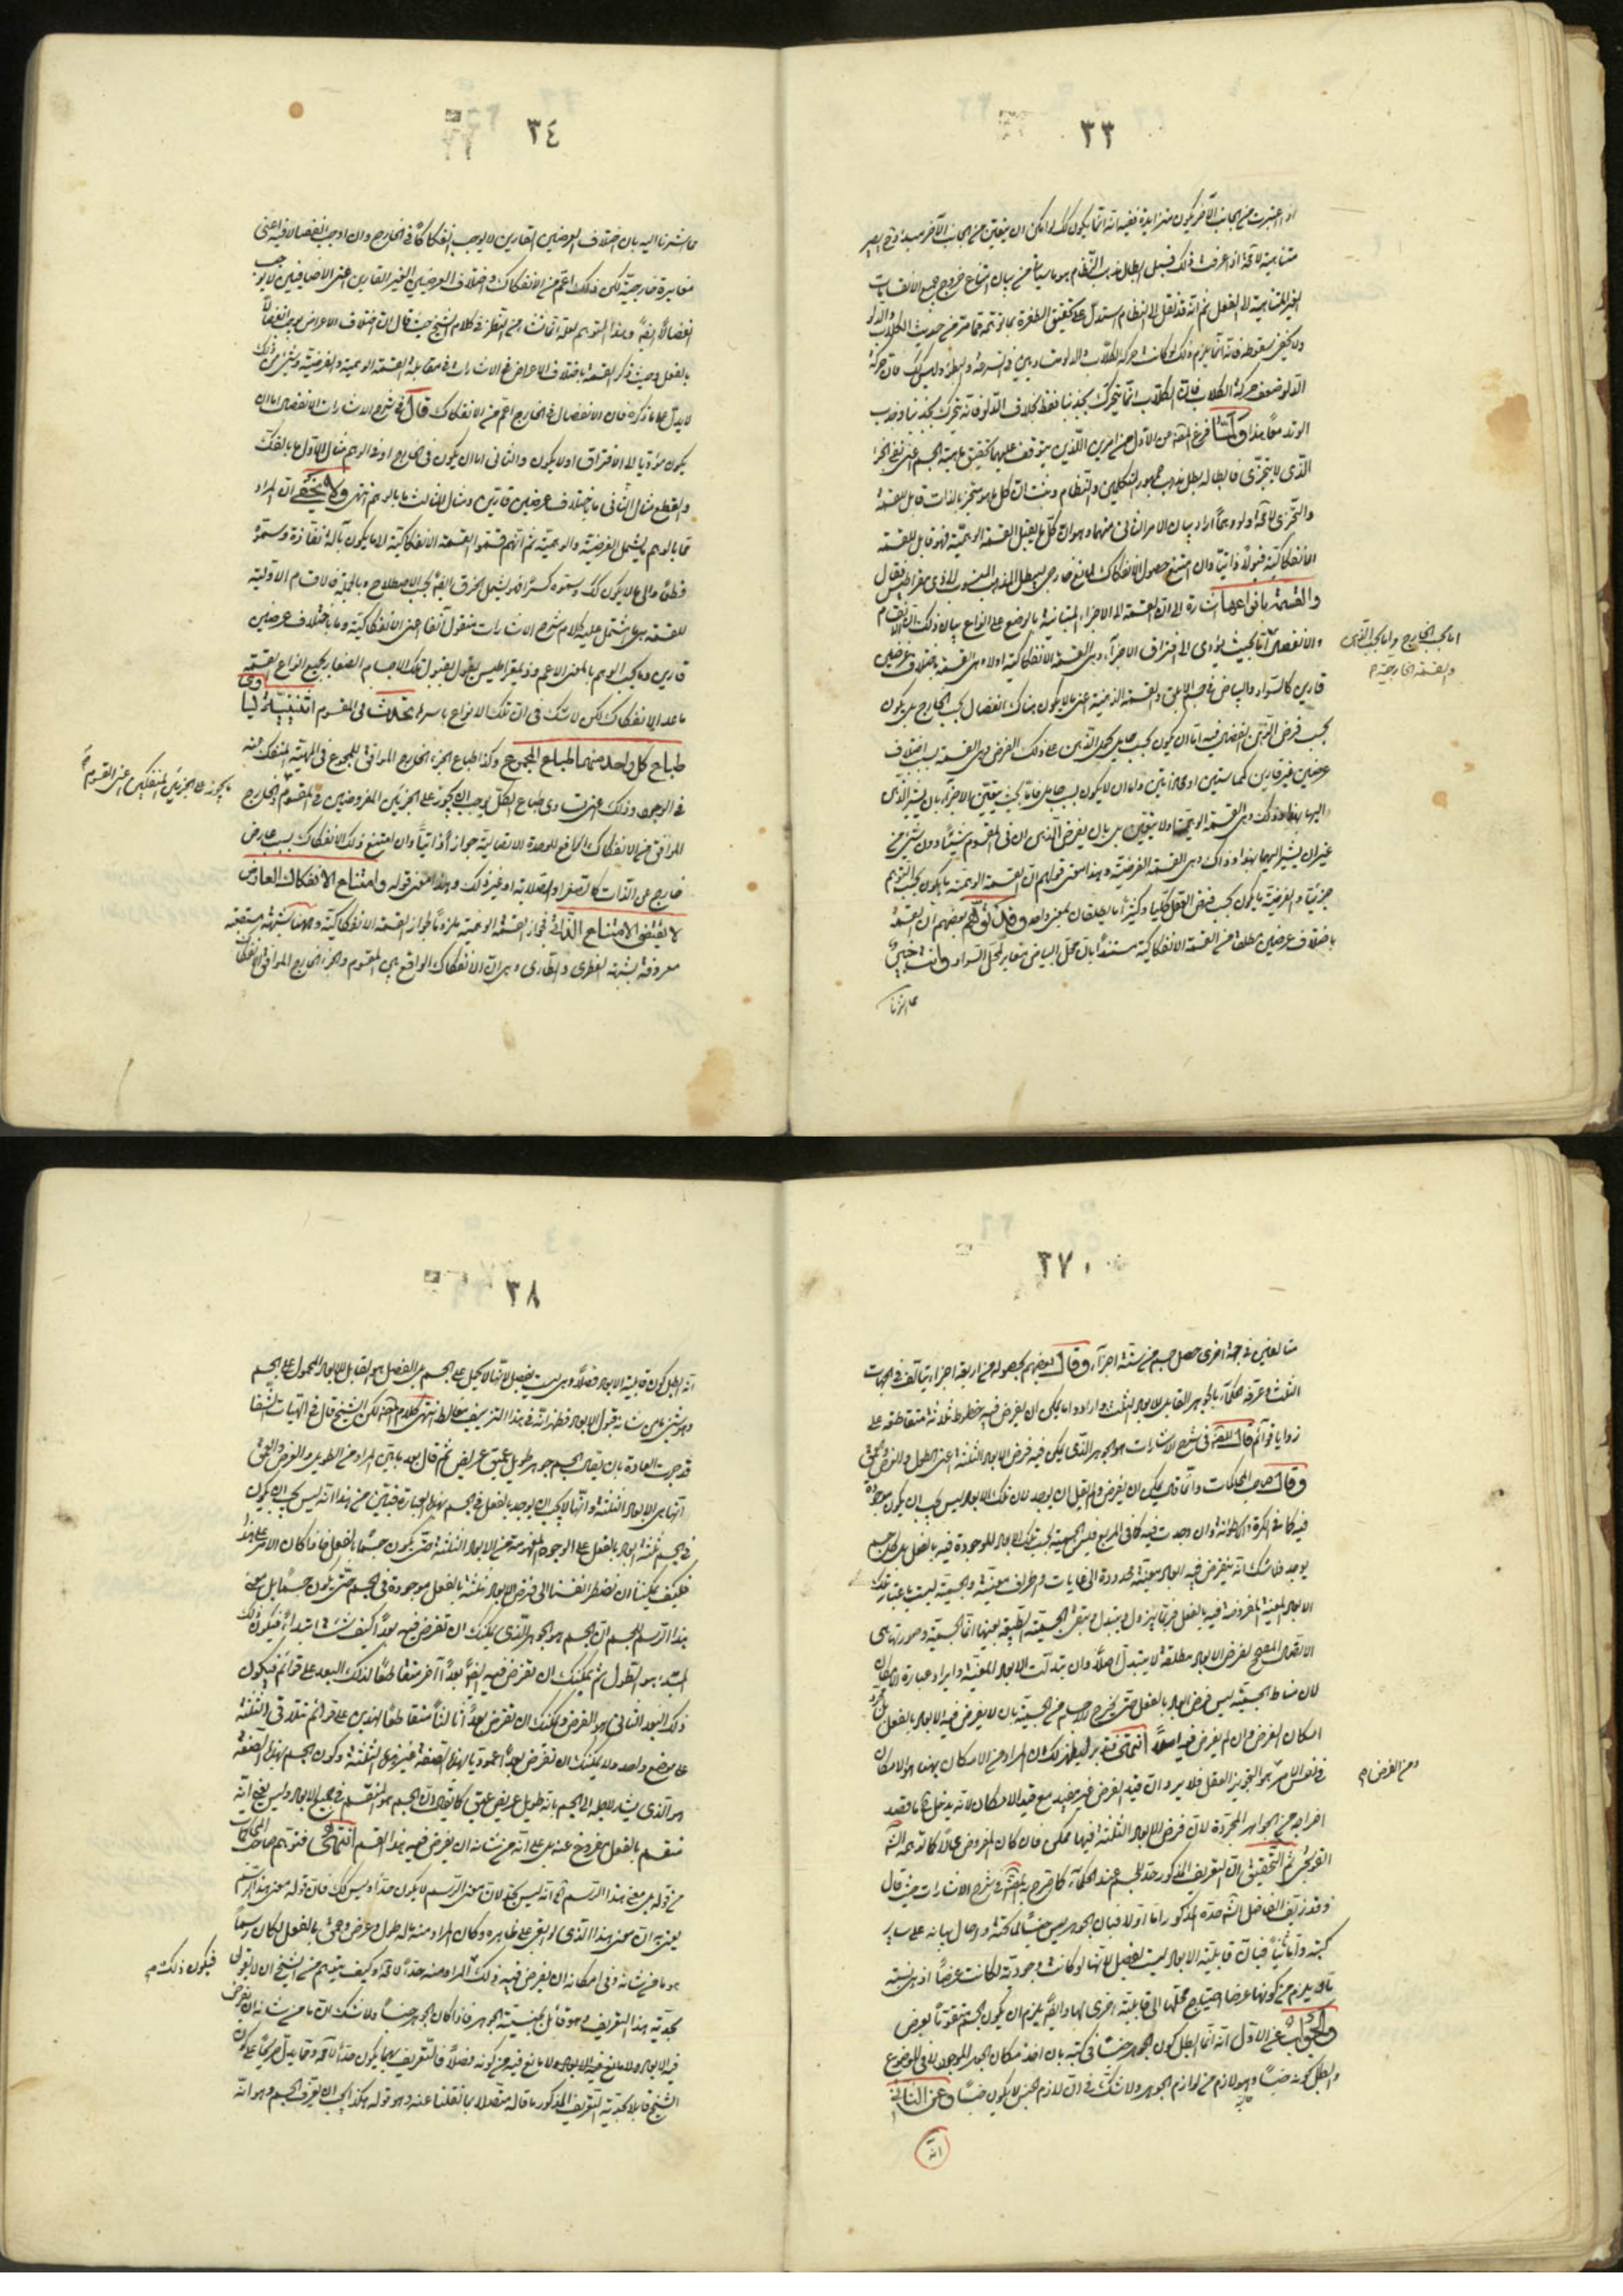 ٣٣
اذا اعتبرت من الجانب الآخر يكون متزايدة ففيه انه انما يكون كذلك لو امكن ان يتعين من الجانب الآخر مبدء
متناهية لا محالة اذا عرفت ذلك فسبيل ابطال مذهب النظام هو ما سيأتى من بيان امتناع خروج جميع الانقسامات
الغير المتناهية الى الفعل ثم انه قد نقل ان النظام استدل على تحقيق الطفرة بما
ولا يخفى سقوطه فانه انما يلزم ذلك لو كانت حركة الكلاب والدلو متساويين فى السرعة والبطؤ وليس كذلك فان حركة
الدلو ضعف حركة الكلاب فان الكلاب انما يتحرك بجذبنا فقط بخلاف الدلو فانه يتحرك بجذبنا وجذب
الوتد معا هذا ولما فرغ المص من الاول من امرين اللذين يتوقف عليهما تحقيق ماهية الجسم اعنى نفى الجزء
الذى لا يتجزى فابطاله يبطل مذهب جمهور المتكلمين والنظام وثبت ان كل ما هو متحيز بالذات قابل للقسمة
والتجزى لا محالة ولو وهماً اراد بيان الامر الثانى منهما وهو ان كل ما يقبل القسمة الوهمية فهو قابل للقسمة
الانفكاكية قبولاً ذاتياً وان امتنع حصول الانفكاك لمانع خارجى ليبطل المذهب المنسوب الى ذيمقراطيس فقال
والقسمة بانواعها اشارة الى ان القسمة الى الاجزاء المتباينة بالوضع على انواع بيان ذلك ان الانقسام
والانفصال اما بحيث يؤدى الى افتراق الاجزاء وهى القسمة الانفكاكية اولا وهى القسمة باختلاف عرضين
قارين كالسواد والبياض فى جسم الابلق والقسمة الذهنية اعنى ما لا يكون هناك انفصال بحسب الخارج بل يكون
بحسب فرض الذهن الانفصال فيه اما ان يكون بحسب حامل يحمل الذهن على ذلك الفرض وهى القسمة بسبب اختلاف
عرضين غير قارين كمماستين او محاذاتين واما ان لا يكون بسبب حامل فاما بحيث يتعين الاجزاء بان يشير الذهن
اليها بهذا وذلك وهى القسمة الوهمية اولا يتعين بل بان يفرض الذهن ان فى المقسوم شيئا دون شئ من
غير ان يشير اليهما بهذا وذاك وهى القسمة الفرضية وهذا معنى قولهم ان القسمة الوهمية ما يكون بحسب التوهم
جزئيا والفرضية ما يكون بحسب فرض العقل كليا وكثيرا ما يطلقان بمعنى واحد وقد توهم بعضهم ان القسمة
باختلاف عرضين مطلقا من القسمة الانفكاكية مستندا بان محل البياض مغاير لمحل السواد وانت خبير
اما بحسب الخارج واما بحسب الذهن
والقسمة الخارجية
٣٤
مما اشرنا اليه بان اختلاف العرضين القارين لا يوجب انفكاكاً فى الخارج وان اوجب انفصالا فيه اعنى
مغايرة خارجية لكن ذلك اعم من الانفكاك واختلاف العرضين الغير القارين اعنى الاضافيين لا يوجب
انفصالاً ايضاً وهذا التوهم لعله انما نشأ من النظر فى كلام الشيخ حيث قال ان اختلاف الاعراض يوجب انفصالاً
بالفعل وحيث ذكر القسمة باختلاف الاعراض فى الاشارات فى مقابلة القسمة الوهمية والفرضية وشئ من ذلك
لا يدل على ما ذكره فان الانفصال فى الخارج اعم من الانفكاك قال فى شرح الاشارات الانفصال اما ان
يكون مؤديا الى الافتراق اولا يكون والثانى اما ان يكون فى الخارج او فى الوهم مثال الاول ما بالفك
والقطع مثال الثانى ما باختلاف عرضين قارين ومثال الثالث ما بالوهم انتهى ولا يخفى ان المراد
مما بالوهم ما يشمل الفرضية والوهمية ثم انهم قسموا القسمة الانفكاكية الى ما يكون بآلة نفاذة وسموه
قطعاً والى ما لا يكون كذلك وسموه كسراً فقد يشمل الخرق ايضاً بحسب الاصطلاح وبالجملة فالاقسام الاولية
للقسمة هى ما اشتمل عليه كلام شرح الاشارات منقول آنفا اعنى الانفكاكية وما باختلاف عرضين
قارين وما بحسب الوهم بالمعنى الاعم وذيمقراطيس يقول بقبول تلك الاجسام الصغار جميع انواع القسمة
ما عدا الانفكاك لكن لا شك فى ان تلك الانواع باسرها تحدث فى المقسوم اثنينية يساوى
طباع كل واحد منهما لطباع المجموع وكذا طباع الجزء الخارج الموافق للمجموع فى المهية المنفك عنه
فى الوجود وذلك اعنى تساوى طباع الكل يوجب ان يجوز على الجزئين المفروضين فى المقسوم والخارج
الموافق من الانفكاك الرافع للوحدة الاتصالية جوازاً ذاتياً وان امتنع ذلك الانفكاك بسبب عارض
خارج عن الذات كالصغر او الصلابة او غير ذلك وهذا معنى قوله وامتناع الانفكاك العارض
لا يقتضى الامتناع الذاتى فجاز القسمة الوهمية ملزوماً لجواز القسمة الانفكاكية وههنا شبهة مستصعبة
معروفة بشبهة الفطرى والطارى وهى ان الانفكاك الواقع بين المقسوم والجزء الخارج الموافق انفكاك
ما يجوز على الجزئين المنفكين اعنى المقسوم
٣٧
متألفين فى جهة اخرى حصل جسم من ستة اجزاء وقال بعضهم بحصوله من اربعة اجزاء يتألف فى الجهات
الثلث وعرفه الحكماء بالجوهر القابل للابعاد الثلثة وارادوا ما يمكن ان يفرض فيه خطوط ثلاثة متقاطعة على
زوايا قوائم قال المص فى شرح الاشارات هو الجوهر الذى يمكن فيه فرض الابعاد الثلثة اعنى الطول والعرض والعمق
وقال صاحب المحاكمات وانما قال يمكن ان يفرض ولم يقل ان يوجد لان تلك الابعاد ليس يجب ان يكون موجودة
فيه كما فى الكرة والاسطوانة وان وجدت فيه كما فى المربع فليس الجسمية بحسب تلك الابعاد الموجودة فيه بالفعل بل كل جسم
يوجد فلا شك انه يفرض فيه ابعاد معينة محدودة الى نهايات واطراف معينة والجسمية ليست باعتبار تلك
الابعاد المعينة المفروضة فيه بالفعل فربما يزول ويتبدل ويبقى الجسمية الطبيعية بعينها انما الجسمية وصورتها هى
الاتصال المصحح لفرض الابعاد مطلقة لا يتبدل اصلا وان تبدلت الابعاد المعينة وايراد عبارة الامكان
لان مناط الجسمية ليس فرض ابعاد بالفعل حتى يخرج الاجسام من الجسمية بان لا يفرض فيه الابعاد بالفعل بل مجرد
امكان الفرض وان لم يفرض فيه اصلاً انتهى فتدبر ليظهر لك ان المراد من الامكان ههنا هو الامكان
فى نفس الامر هو التجويز العقلى فلا يرد ان قيد الفرض غير مفيد مع قيد الامكان لانه يدخل ما قصد
اخراجه من الجواهر المجردة لان فرض الابعاد الثلثة فيها ممكن فان كان المفروض محالاً كما توهمه الش
القوشجى ثم التحقيق ان التعريف المذكور حد للجسم عند الحكماء كما صرح به المص فى شرح الاشارات حيث قال
وقد زيف الفاضل الش حده المذكور اما اولا فبان الجوهر ليس جنساً لما تحته واحال بيانه على ساير
كتبه واما ثانياً فبان قابلية الابعاد ليست بفصل لانها لو كانت وجودية لكانت عرضاً اذ هى نسبة
ما ويلزم من كونها عرضا احتياج محلها الى قابلية اخرى لها وايضا يلزم ان يكون الجسم متقوماً بعرض
والجواب عن الاول انه انما ابطل كون الجوهر جنساً فى كتبه بان اخذ مكان الجوهر الموجود لا فى الموضوع
وابطل كونه جنساً وهو لازم من لوازم الجوهر ولا شك فى ان لازم الجنس لا يكون جنساً وعن الثانى
انه
ومن الفرض
٣٨
انه ابطل كون قابلية الابعاد فصلاً وهى ليست بفصل لانها لا تحمل على الجسم بل الفصل هو القابل للابعاد المحمول على الجسم
وهو شئ من شأنه قبول الابعاد فظهر انه فى هذا التزييف مغالط انتهى كلام المص لكن الشيخ قال فى الهيات الشفا
قد جرت العادة بان يقال الجسم جوهر طويل عميق عريض ثم قال بعد ما بين المراد من الطويل والعرض والعمق
انها هى الابعاد الثلثة وانها لا يجب ان يوجد بالفعل فى جسم بهذه العبارة فبين من هذا انه ليس يجب ان يكون
فى الجسم ثلثة ابعاد بالفعل على الوجوه المفهومة من الابعاد الثلثة حتى يكون جسما بالفعل فاذا كان الامر على هذا
فكيف يمكننا ان نضطر انفسنا الى فرض ابعاد ثلثة بالفعل موجودة فى الجسم حتى يكون جسما بل معنى
هذا الرسم للجسم ان الجسم هو الجوهر الذى يمكنك ان تفرض فيه بعداً كيف شئت ابتداءً فيكون ذلك
المبتدء هو الطول ثم يمكنك ان تفرض فيه ايضاً بعداً آخر متقاطعاً لذلك البعد على قوائم فيكون
ذلك البعد الثانى هو العرض ويمكنك ان تفرض بعداً ثالثاً متقاطعا لهذين على قوائم تتلاقى الثلثة
على موضع واحد ولا يمكنك ان تفرض بعداً عموديا بهذه الصفة غير هذه الثلثة وكون الجسم بهذه الصفة
هو الذى يشار لاجله الى الجسم بانه طويل عريض عميق كما يقال ان الجسم هو المنقسم فى جميع الابعاد وليس يعنى انه
منقسم بالفعل مفروغ عنه بل على انه من شأنه ان يفرض فيه هذا القسم انتهى فتوهم صاحب المحاكمات
من قوله بل معنى هذا الرسم ثم انه ليس بحد لان معنى الرسم لا يكون حداً وليس كذلك فان قوله معنى هذا الرسم
يعنى به ان معنى هذا الذى لو ابقى على ظاهره وكان المراد منه ما له طول وعرض وعمق بالفعل لكان رسماً
هو ما من شأنه وفى امكانه ان يفرض فيه ذلك المراد منه حداً لا محالة وكيف يتوهم من الشيخ ان لا يقول
بحدية هذا التعريف وهو قائل بجنسية الجوهر فاذا كان الجوهر جنساً ولا شك ان ما من شأنه ان يفرض
فيه الابعاد ولا مانع فيه من كونه فصلاً فالتعريف بهما يكون حداً لا محالة
الشيخ قائلا بحدية التعريف المذكور ما قاله متصلا بما نقلنا عنه وهو قوله هكذا يجب ان يعرف الجسم وهو انه
فيكون ذلك